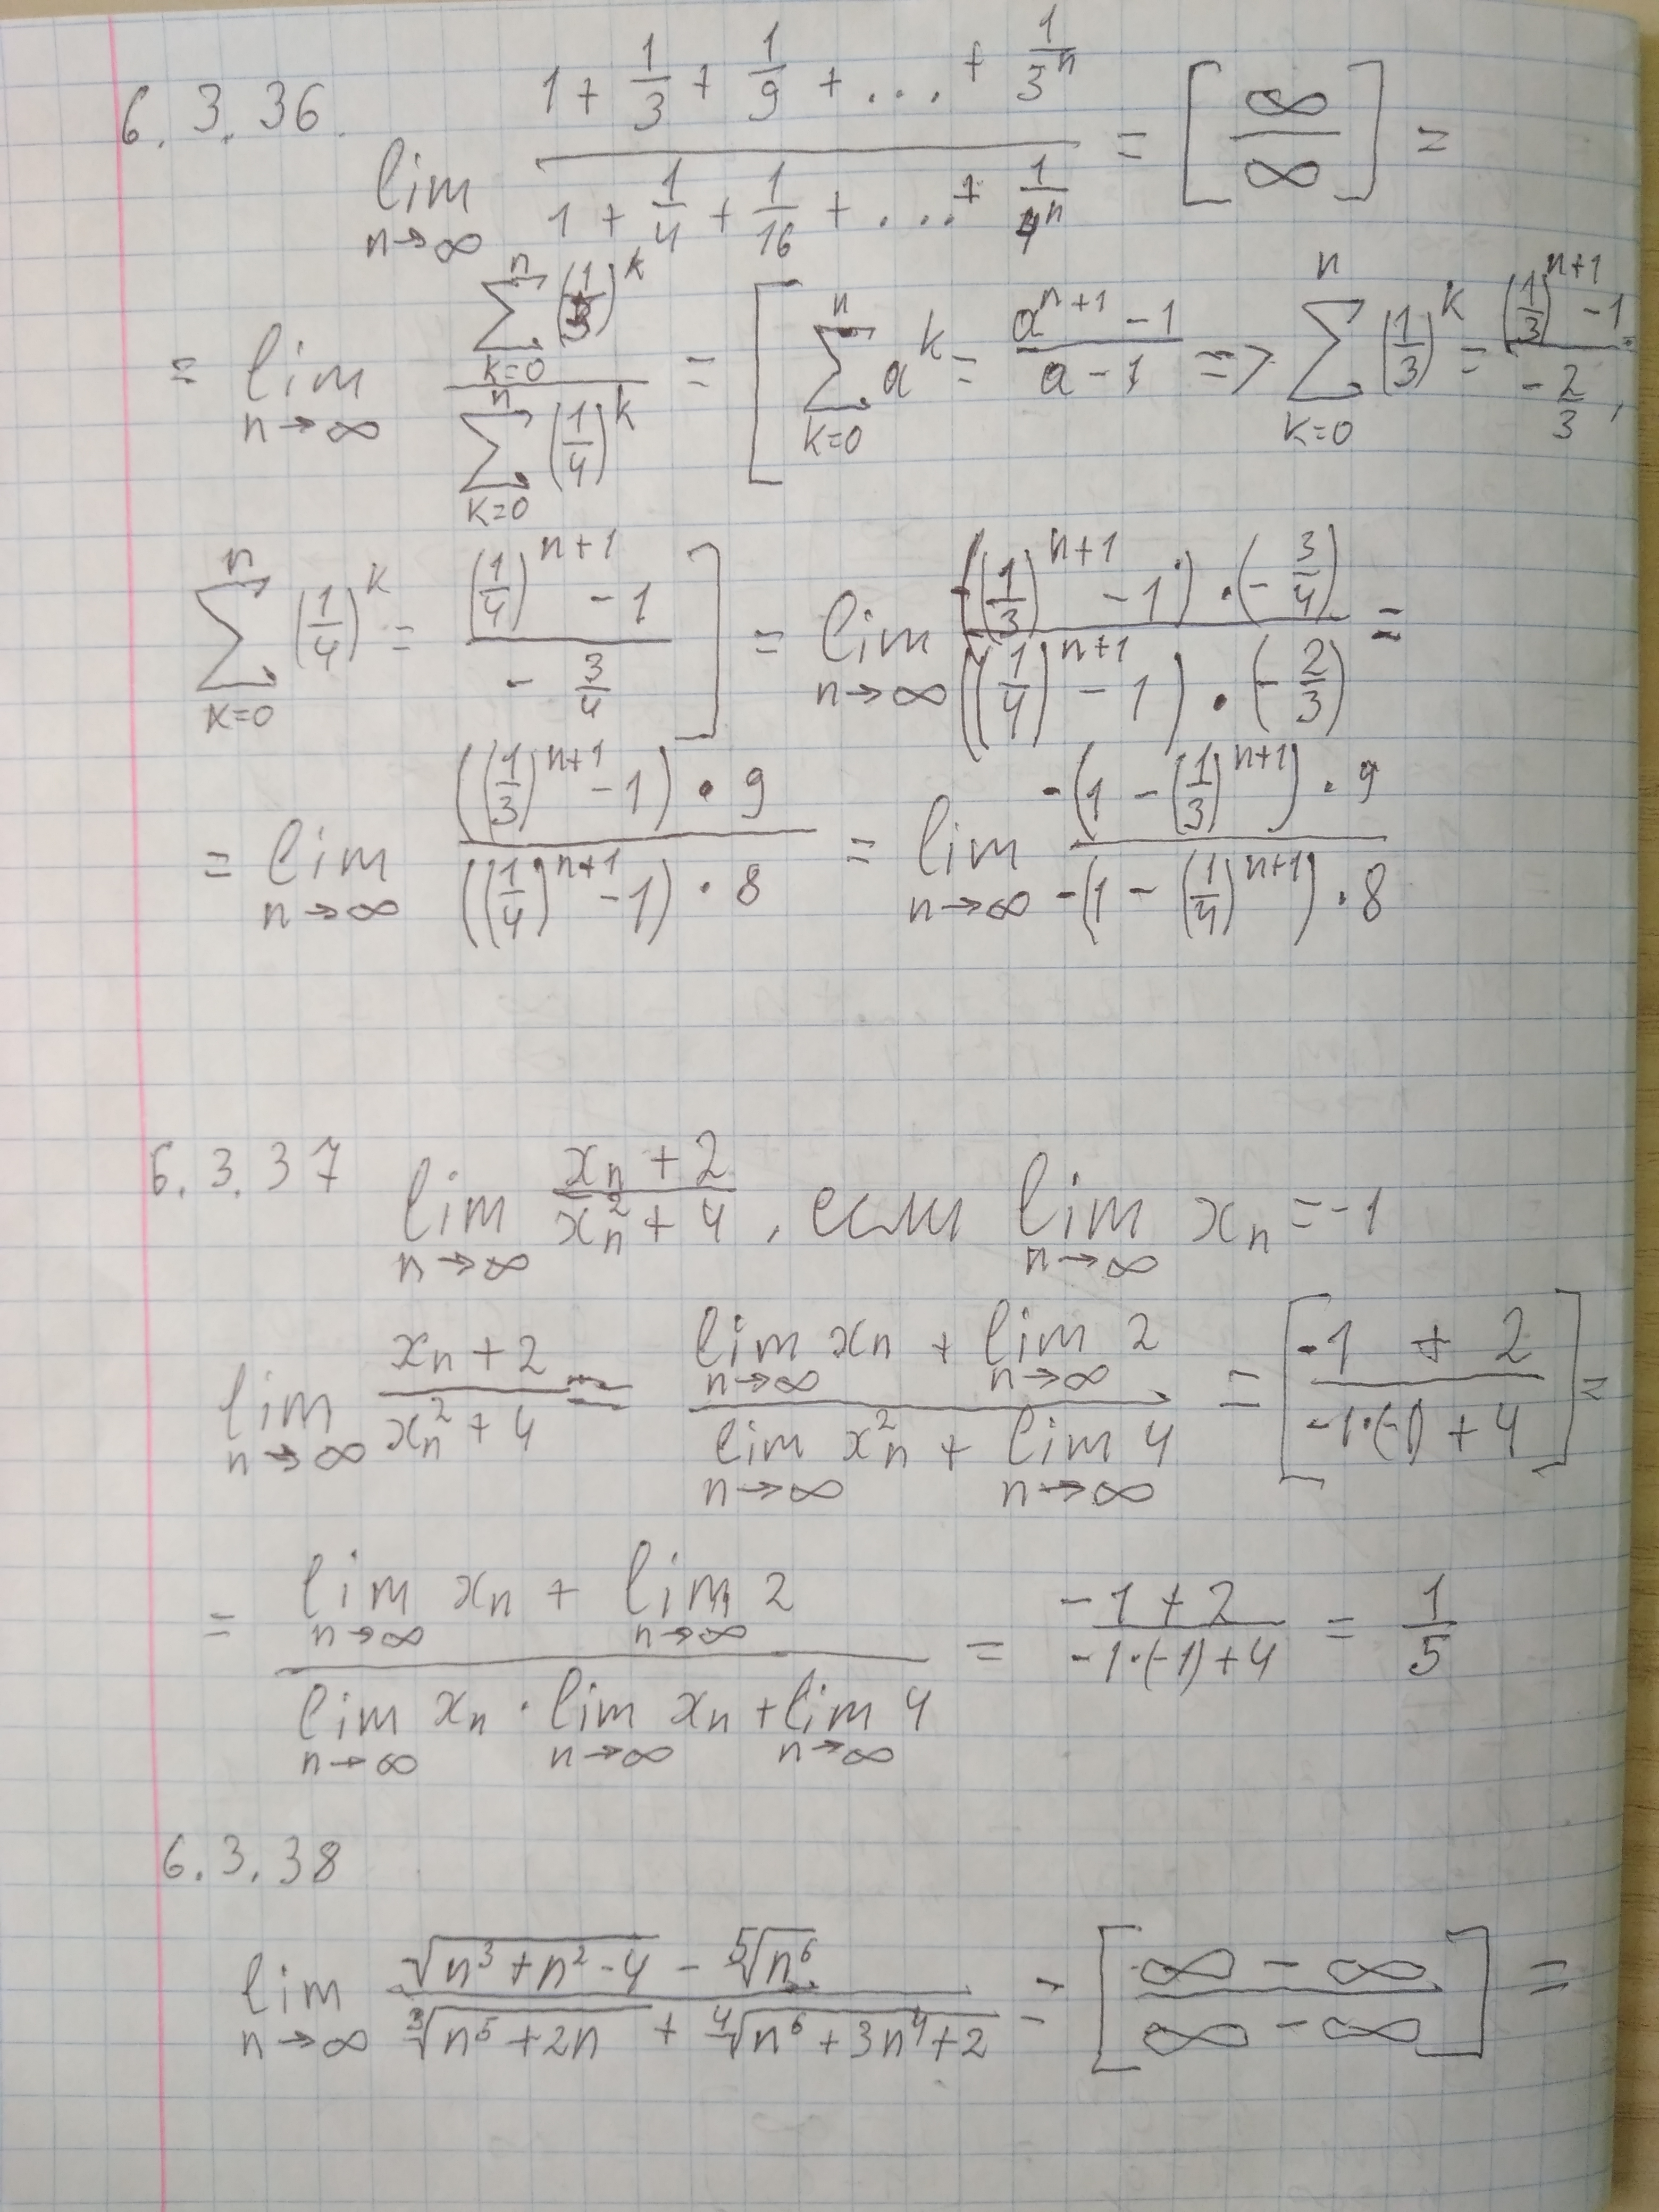 6.3.36. lim_{n→∞} (1 + 1/3 + 1/9 + ... + 1/3^n) / (1 + 1/4 + 1/16 + ... + 1/4^n) = [∞/∞] =
= lim_{n→∞} (∑_{k=0}^{n} (1/3)^k) / (∑_{k=0}^{n} (1/4)^k) = [ ∑_{k=0}^{n} a^k = (a^{n+1} - 1)/(a - 1) => ∑_{k=0}^{n} (1/3)^k = ((1/3)^{n+1} - 1)/(-2/3),
∑_{k=0}^{n} (1/4)^k = ((1/4)^{n+1} - 1)/(-3/4) ] = lim_{n→∞} (((1/3)^{n+1} - 1) · (-3/4)) / (((1/4)^{n+1} - 1) · (-2/3)) =
= lim_{n→∞} (((1/3)^{n+1} - 1) · 9) / (((1/4)^{n+1} - 1) · 8) = lim_{n→∞} (-(1 - (1/3)^{n+1}) · 9) / (-(1 - (1/4)^{n+1}) · 8)
6.3.37 lim_{n→∞} (x_n + 2)/(x_n^2 + 4), если lim_{n→∞} x_n = -1
lim_{n→∞} (x_n + 2)/(x_n^2 + 4) = (lim_{n→∞} x_n + lim_{n→∞} 2) / (lim_{n→∞} x_n^2 + lim_{n→∞} 4) = [(-1 + 2)/(-1·(-1) + 4)] =
= (lim_{n→∞} x_n + lim_{n→∞} 2) / (lim_{n→∞} x_n · lim_{n→∞} x_n + lim_{n→∞} 4) = (-1 + 2)/(-1·(-1) + 4) = 1/5
6.3.38
lim_{n→∞} (√(n^3 + n^2 - 4) - ⁵√(n^6)) / (³√(n^5 + 2n) + ⁴√(n^6 + 3n^4 + 2)) = [(∞ - ∞)/(∞ - ∞)] =